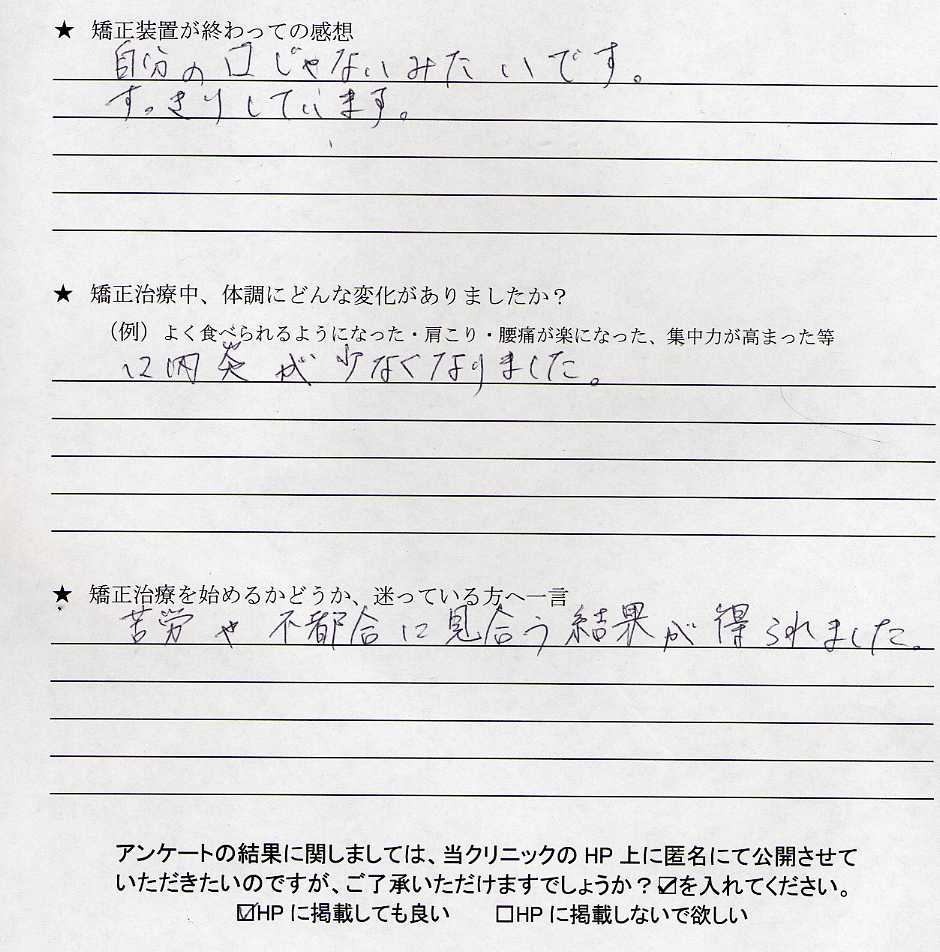 ★ 矯正装置が終わっての感想
自分の口じゃないみたいです。
すっきりしています。
★ 矯正治療中、体調にどんな変化がありましたか？
（例）よく食べられるようになった・肩こり・腰痛が楽になった、集中力が高まった等
口内炎が少なくなりました。
★ 矯正治療を始めるかどうか、迷っている方へ一言
苦労や不都合に見合う結果が得られました。
アンケートの結果に関しましては、当クリニックのHP上に匿名にて公開させて
いただきたいのですが、ご了承いただけますでしょうか？☑を入れてください。
☑HPに掲載しても良い　□HPに掲載しないで欲しい